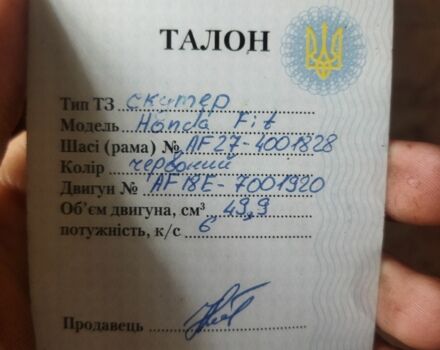 ТАЛОН
Тип ТЗ скутер
Модель Honda Fit
Шасі (рама) № AF27-4001828
Колір червоний
Двигун № AF18E-7001920
Об'єм двигуна, см³ 49,9
потужність, к/с 6
Продавець